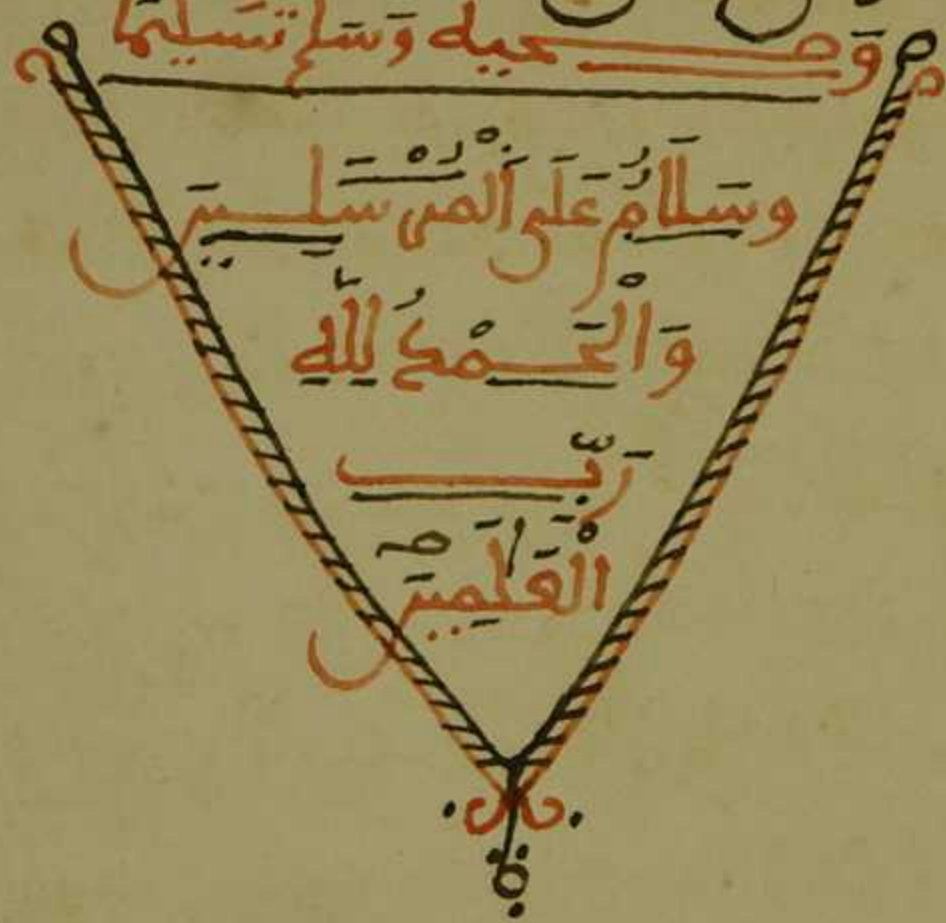 وَصحبه وَسَلم تَسليمًا
وسَلَامٌ عَلَى اَلْمُرْسَلِيںَ
وَالْحَمْدُ لِلَّهِ
رَبِّ
الْعَٰلَمِيںَ صح